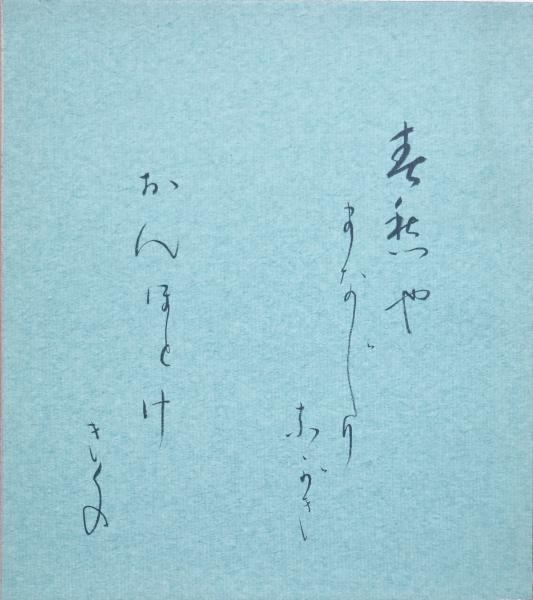 春愁や
まなじり
ながき
おんほとけ
きくの